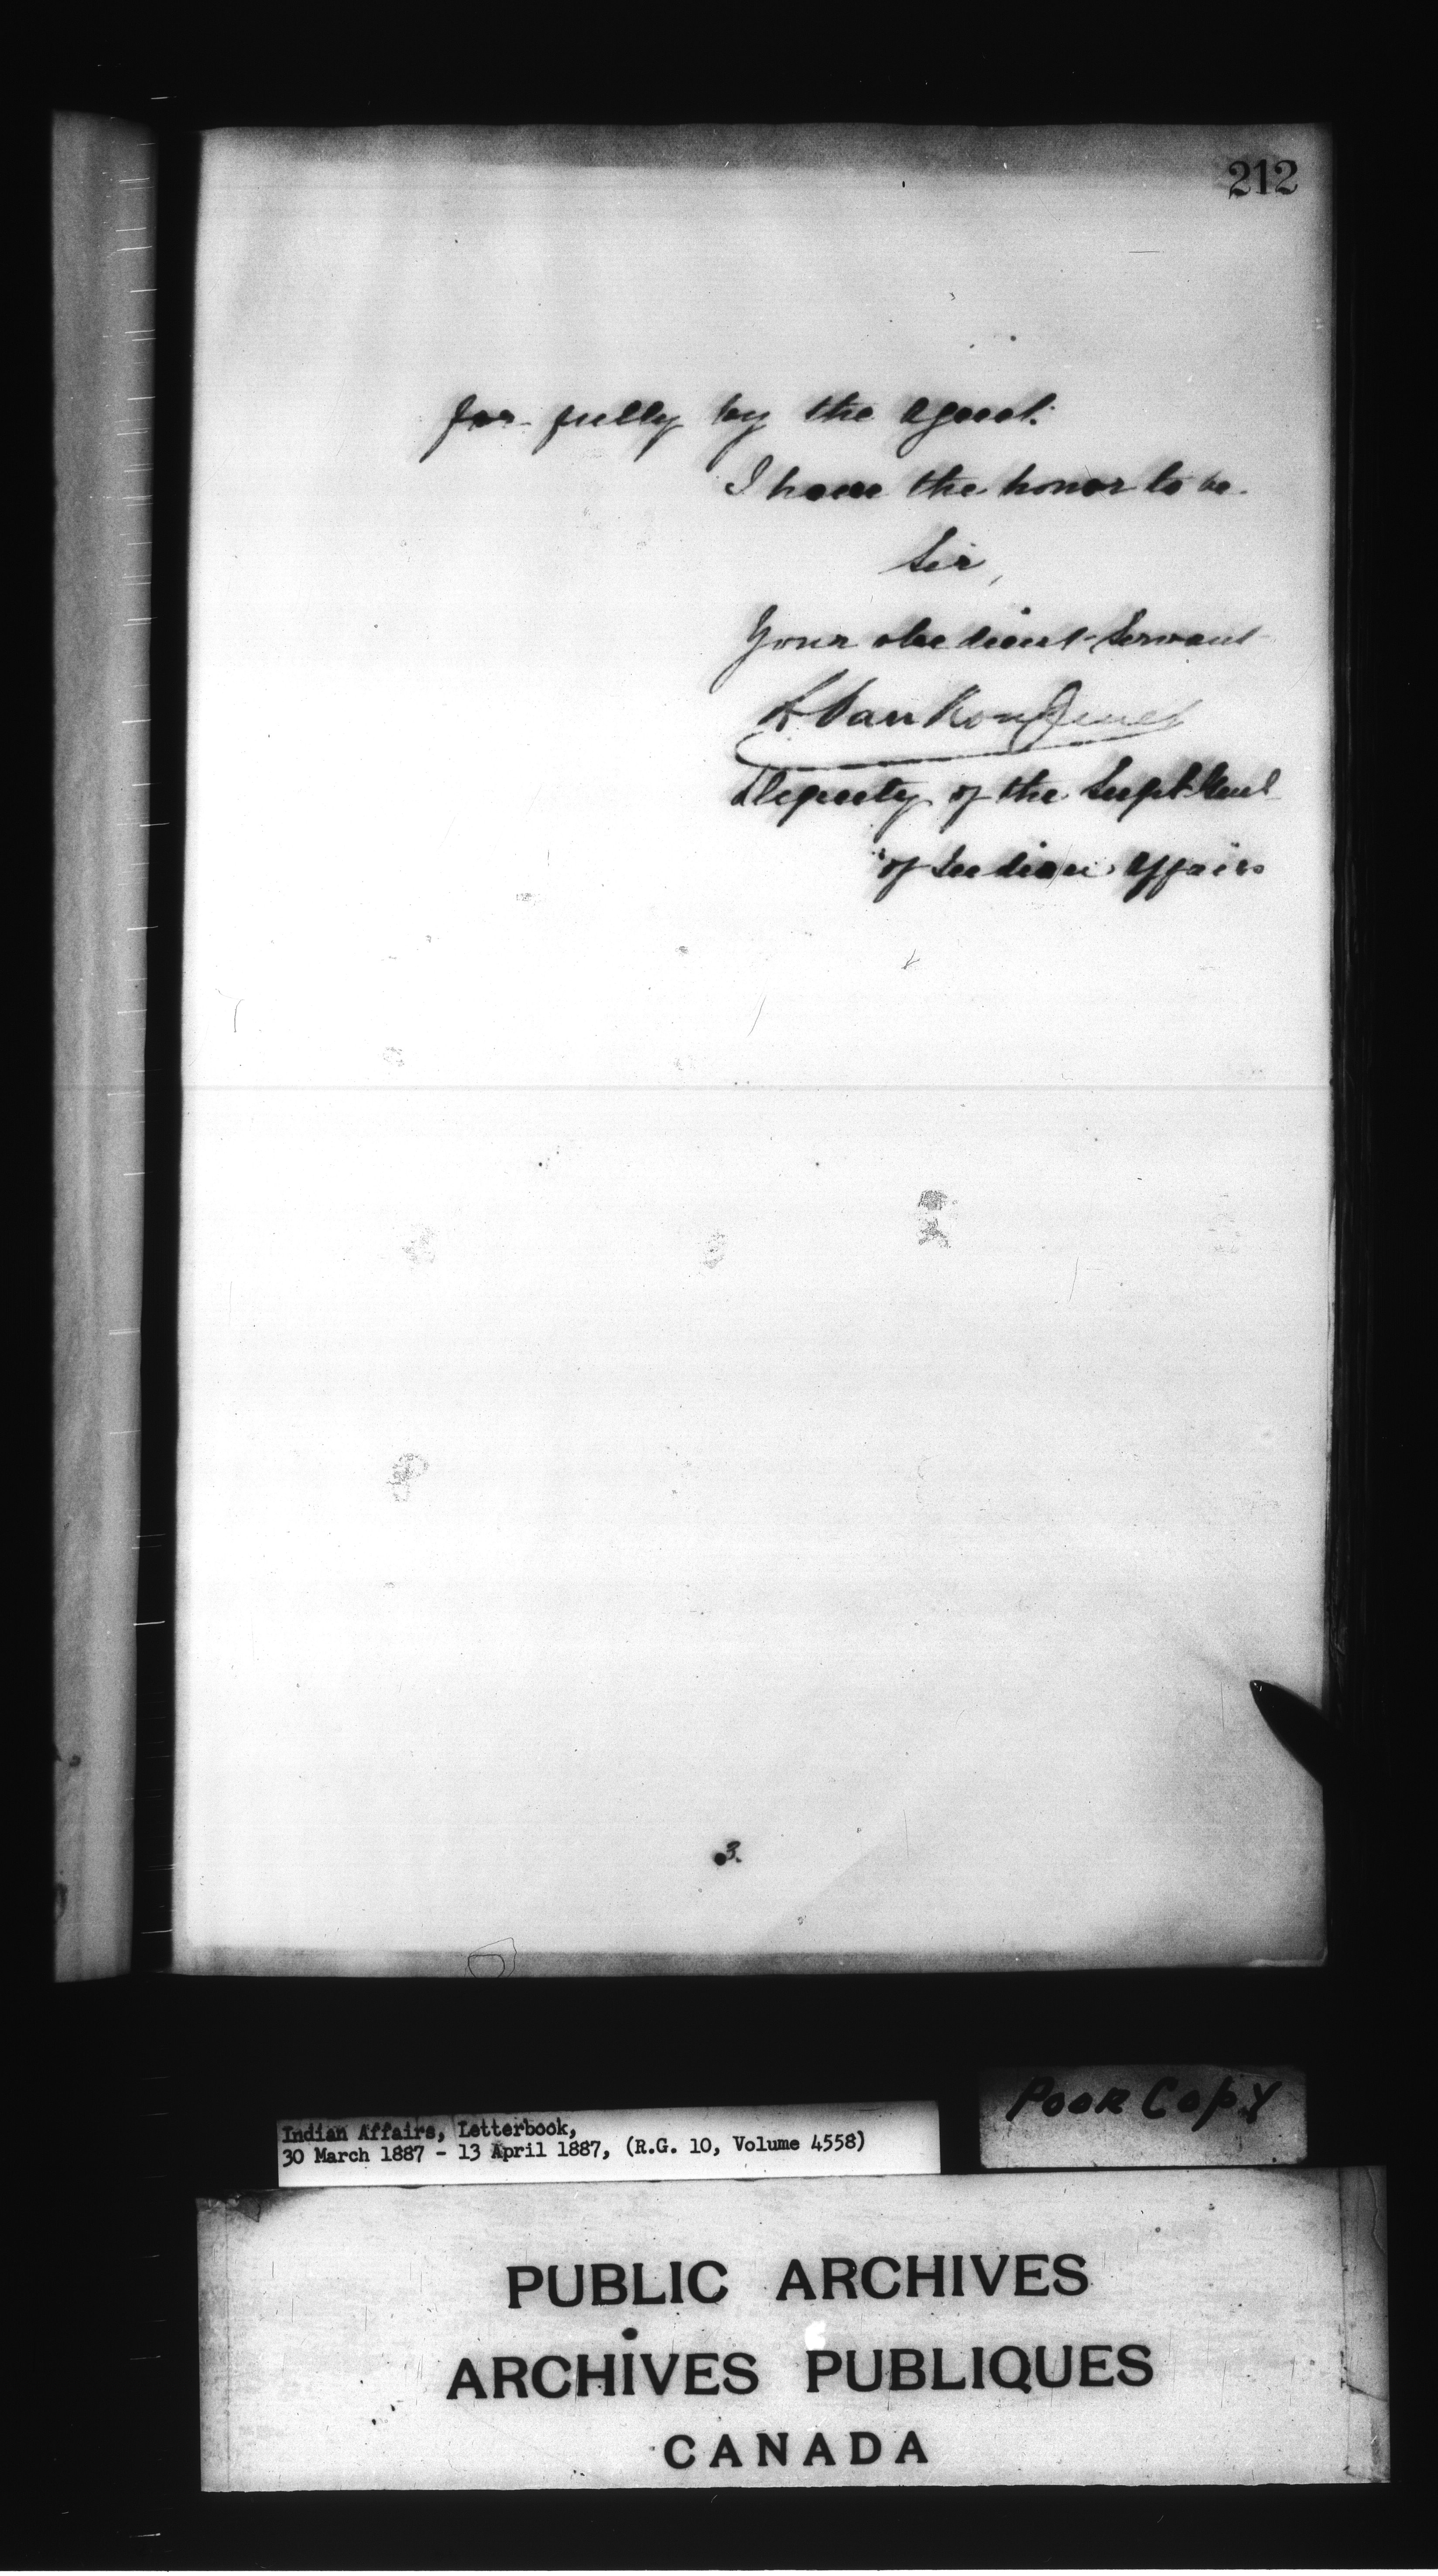 212
for fully by the agent.
I have the honor to be.
Sir,
Your obedient Servant
L VanKoughnet
Deputy of the Supt. Genl
of Indian Affairs
3.
Poor Copy
Indian Affairs, Letterbook,
30 March 1887 - 13 April 1887, (R.G. 10, Volume 4558)
PUBLIC ARCHIVES
ARCHIVES PUBLIQUES
CANADA